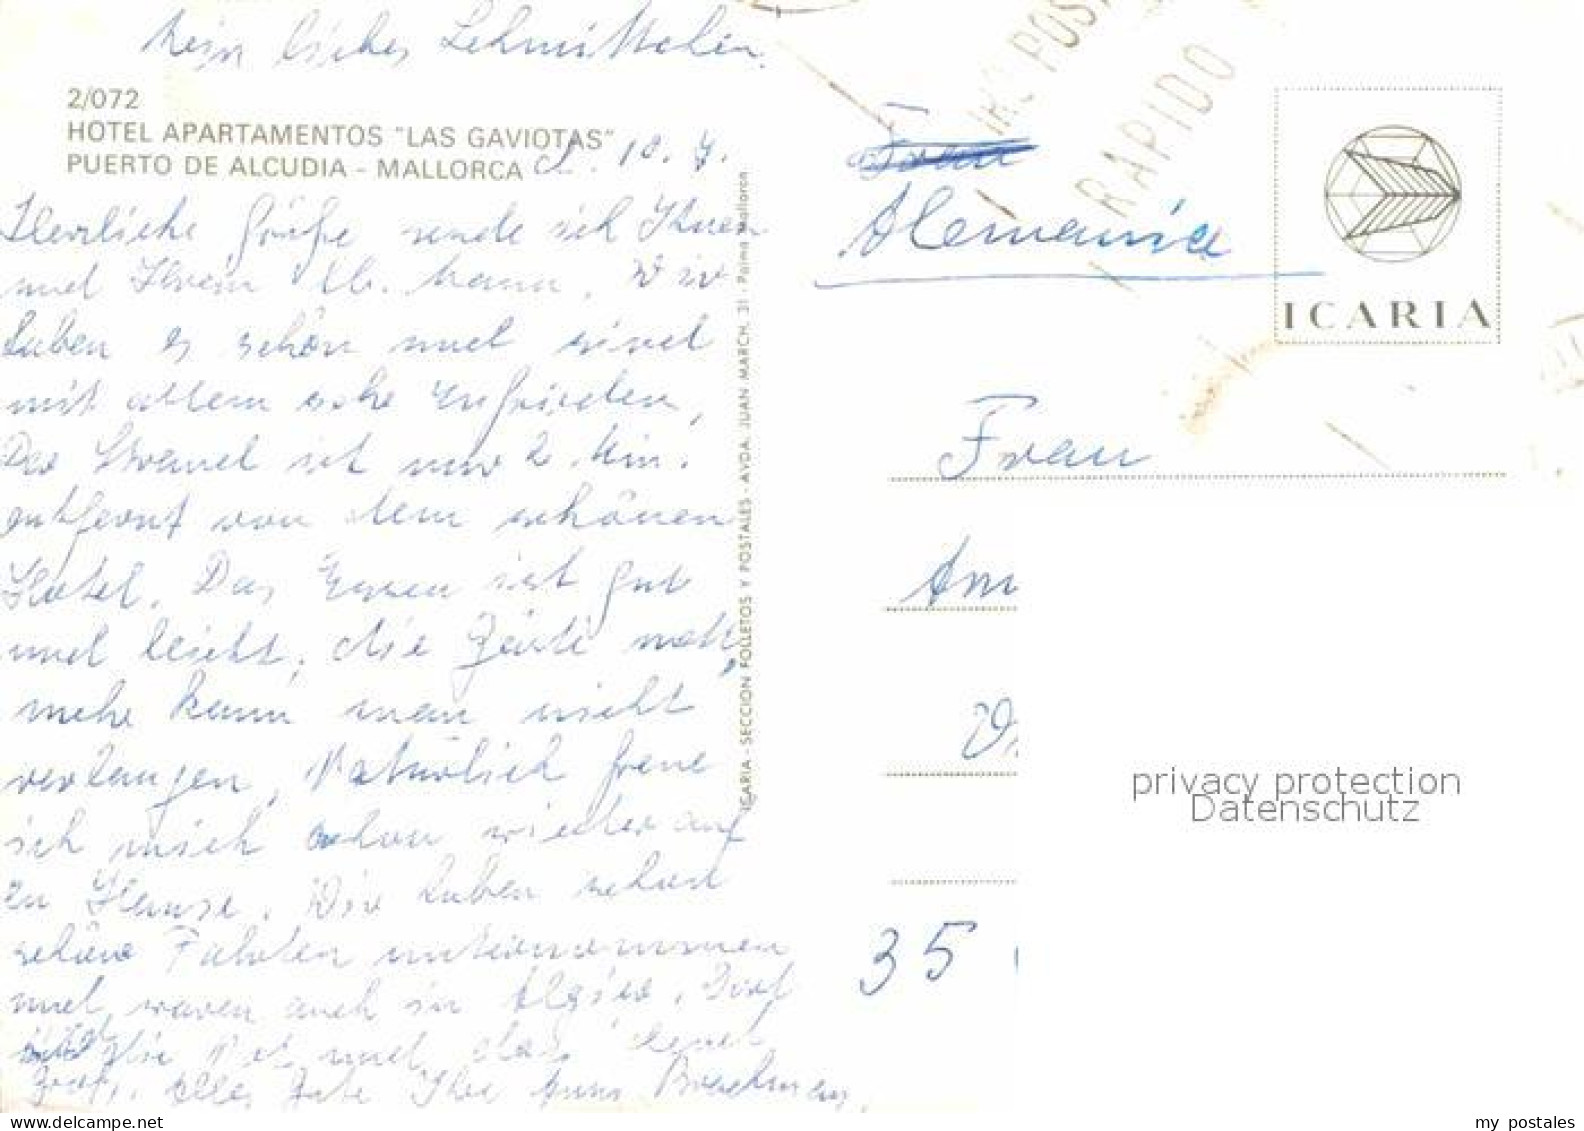 Mein liebes Lehmittchen.
2/072
HOTEL APARTAMENTOS "LAS GAVIOTAS"
PUERTO DE ALCUDIA - MALLORCA d. 10. 7.
Herzliche Grüße sende ich Ihnen
und Ihrem lb. Mann. Wir
haben es schön und sind
mit allem sehr zufrieden,
Der Strand ist nur 2 Min.
entfernt von dem schönen
Hotel. Das Essen ist gut
und leicht, die nett,
mehr kann man nicht
verlangen, Natürlich freue
ich mich schon wieder auf
zu Hause. Wir haben schon
schöne Fahrten unternommen
und waren auch in Algier. Dort
ist die Not und das Elend
groß. Alles Gute Ihre Anni
ICARIA - SECCION FOLLETOS Y POSTALES - AVDA. JUAN MARCH, 31 - Palma Mallorca
POSTAL
RAPIDO
Frau
Alemania
ICARIA
Frau
Am
35
privacy protection
Datenschutz
my postales